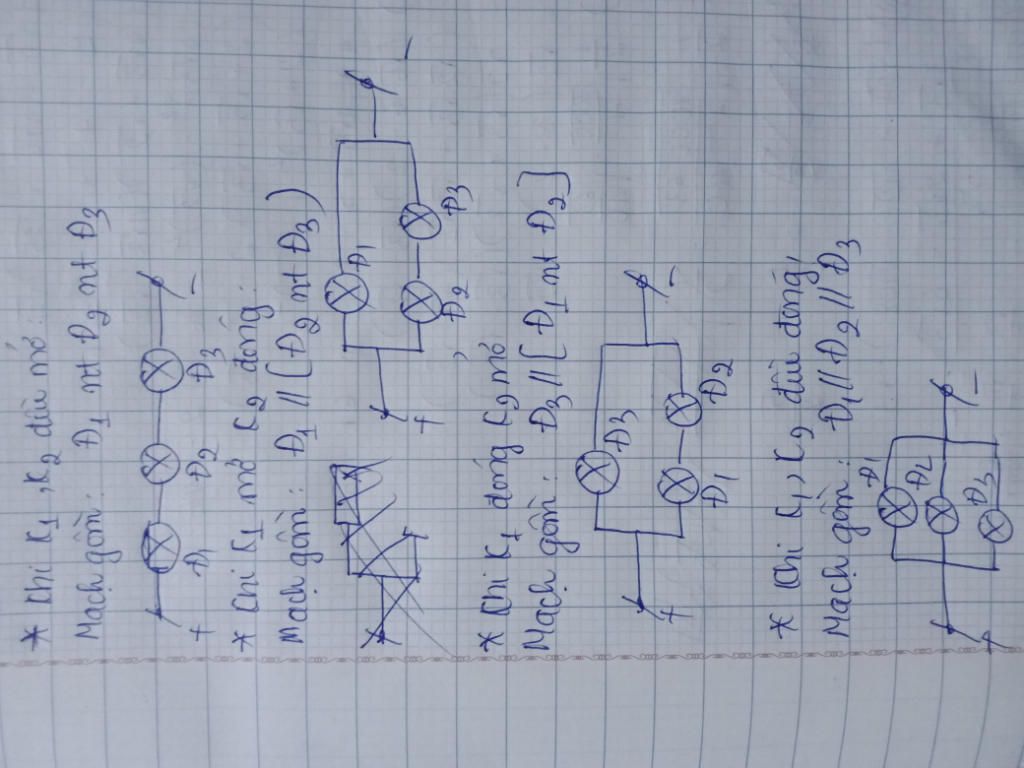 * Khi K1, K2 đều mở:
Mạch gồm: Đ1 nt Đ2 nt Đ3
+ Đ1 Đ2 Đ3 −
* Khi K1 mở K2 đóng:
Mạch gồm: Đ1 // [Đ2 nt Đ3)
Đ1
+ Đ2 Đ3 −
* Khi K1 đóng K2 mở,
Mạch gồm: Đ3 // [Đ1 nt Đ2]
Đ3
+ Đ1 Đ2 −
* Khi K1, K2 đều đóng,
Mạch gồm: Đ1 // Đ2 // Đ3
Đ1
Đ2
+ Đ3 −